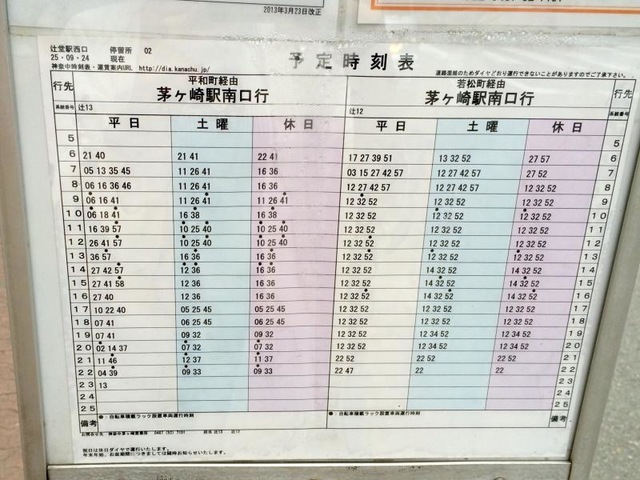 2013年3月23日改正
辻堂駅西口 停留所 02
25・09・24 現在
神奈中時刻表・運賃案内URL http://dia.kanachu.jp/
予定時刻表
道路混雑のためダイヤどおり運行できないことがありますのでご了承下さい。
行先 平和町経由 茅ヶ崎駅南口行 若松町経由 茅ヶ崎駅南口行 行先
系統番号 辻13 辻12 系統番号
平日 土曜 休日 平日 土曜 休日
5 5
6 21 40 21 41 22 41 17 27 39 51 13 32 52 27 57 6
7 05 13 35 45 11 26 41 16 36 03 15 27 42 57 12 27 42 57 27 52 7
8 06 16 36 46 11 26 41 16 36 12 27 42 57 12 27 42 57 12 32 52 8
9 06 16 41 11 26 41 11 26 41 12 32 52 12 32 52 12 32 52 9
10 06 18 41 16 38 16 38 12 32 52 12 32 52 12 32 52 10
11 16 39 57 10 25 40 10 25 40 12 32 52 12 32 52 12 32 52 11
12 26 41 57 10 25 40 10 25 40 12 32 52 12 32 52 12 32 52 12
13 36 57 16 36 16 36 12 32 52 12 32 52 12 32 52 13
14 27 42 57 12 36 16 36 12 32 52 14 32 52 12 32 52 14
15 27 41 58 12 36 16 36 12 32 52 14 32 52 14 32 52 15
16 27 40 12 36 16 36 12 32 52 12 32 52 12 32 52 16
17 10 22 40 05 25 45 05 25 45 12 32 52 12 32 52 12 32 52 17
18 07 41 06 25 45 06 25 45 12 32 52 12 32 52 12 32 52 18
19 07 41 09 32 07 32 12 32 52 12 34 52 12 34 52 19
20 02 14 37 07 32 07 32 12 32 52 12 34 52 12 34 52 20
21 11 46 12 37 11 37 22 52 22 52 22 52 21
22 04 39 09 33 09 33 22 47 22 22 22
23 13 23
24 24
25 25
備考 ●：自転車積載ラック設置車両運行時刻 ●：自転車積載ラック設置車両運行時刻 備考
祝日は休日ダイヤで運行いたします。
年末年始、お盆期間につきましては随時お知らせいたします。